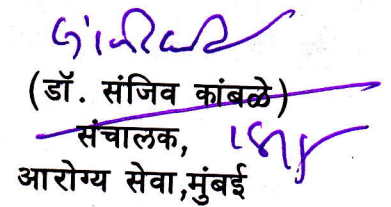 (डॉ. संजिव कांबळे)
संचालक,
आरोग्य सेवा,मुंबई